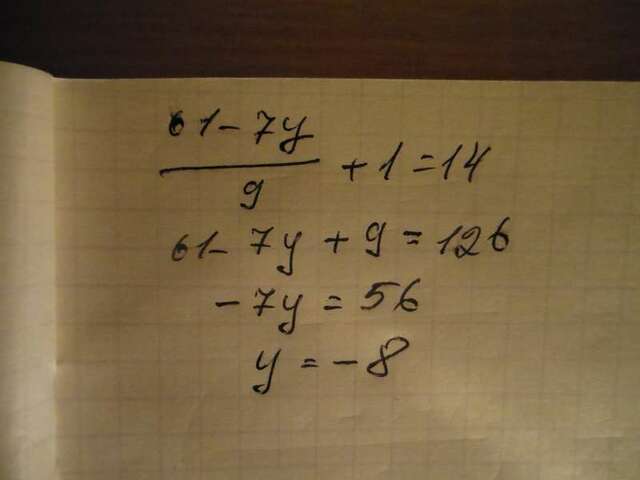 61-7y/9 + 1 = 14
61-7y + 9 = 126
-7y = 56
y = -8